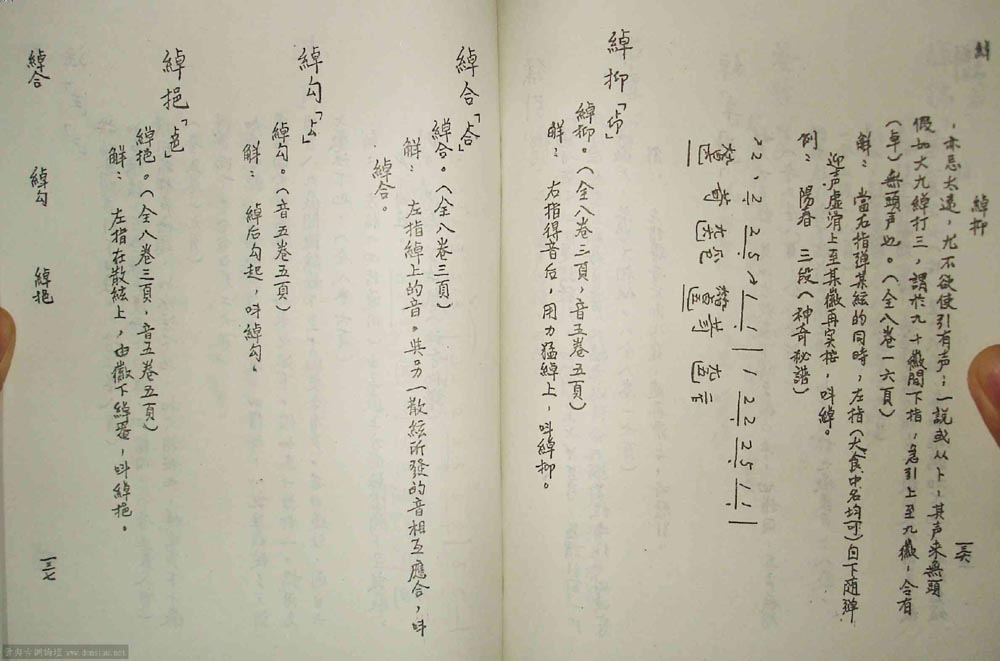 綽抑
一三六
，亦忌太遠，尤不欲使引有声；一說或从卜，其声来無頭
假如大九綽打三，謂於九十徽間下指，急引上至九徽，合有
（卓）無頭声也。（全八卷一六頁）
解： 當右指彈某絃的同時，左指（大食中名均可）自下随彈
迎声虚滑上至某徽再实按，叫綽。
例： 陽春 三段（神奇秘譜）
綽抑「」
綽抑。（全八卷三頁，音五卷五頁）
解： 右指得音后，用力猛綽上，叫綽抑。
綽合「」
綽合。（全八卷三頁）
解： 左指綽上的音。與另一散絃所發的音相互應合，叫
綽合。
綽勾「」
綽勾。（音五卷五頁）
解： 綽后勾起，叫綽勾。
綽挹「」
綽挹。（全八卷三頁，音五卷五頁）
解： 左指在散絃上，由徽下綽，叫綽挹。
綽合 綽勾 綽挹
一三七
www.donsiau.net